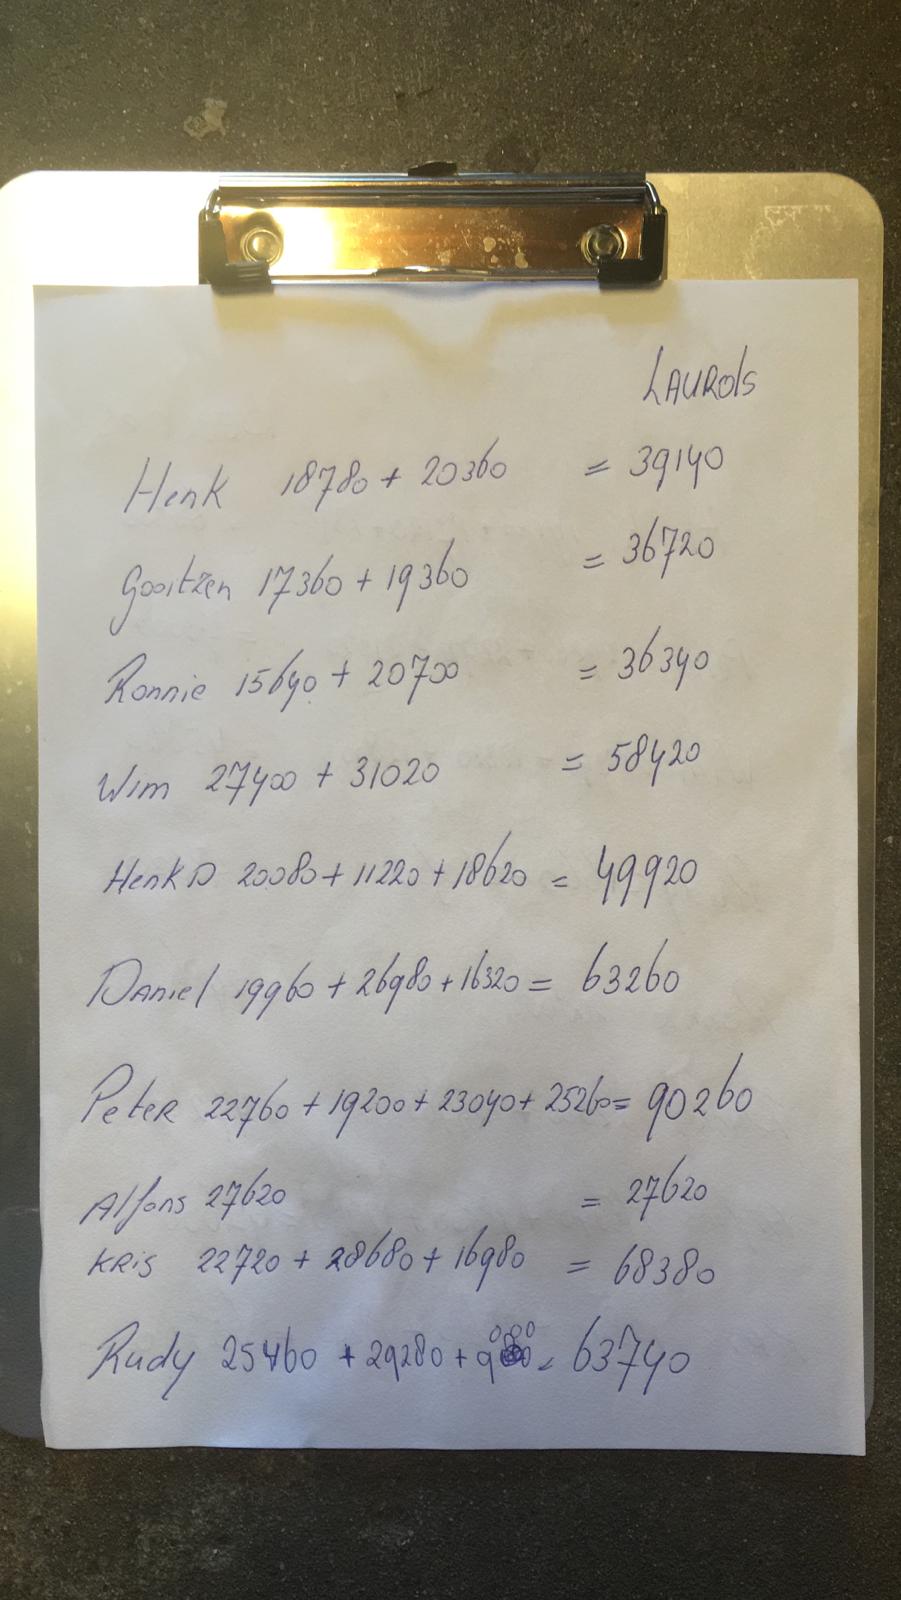 LAUROIS
Henk 18780 + 20360 = 39140
Gooitzen 17360 + 19360 = 36720
Ronnie 15640 + 20700 = 36340
Wim 27400 + 31020 = 58420
Henk D 20080 + 11220 + 18620 = 49920
Daniel 19960 + 26980 + 16320 = 63260
Peter 22760 + 19200 + 23040 + 25260 = 90260
Alfons 27620 = 27620
KRIS 22720 + 28680 + 16980 = 68380
Rudy 25460 + 29280 + 9000 = 63740